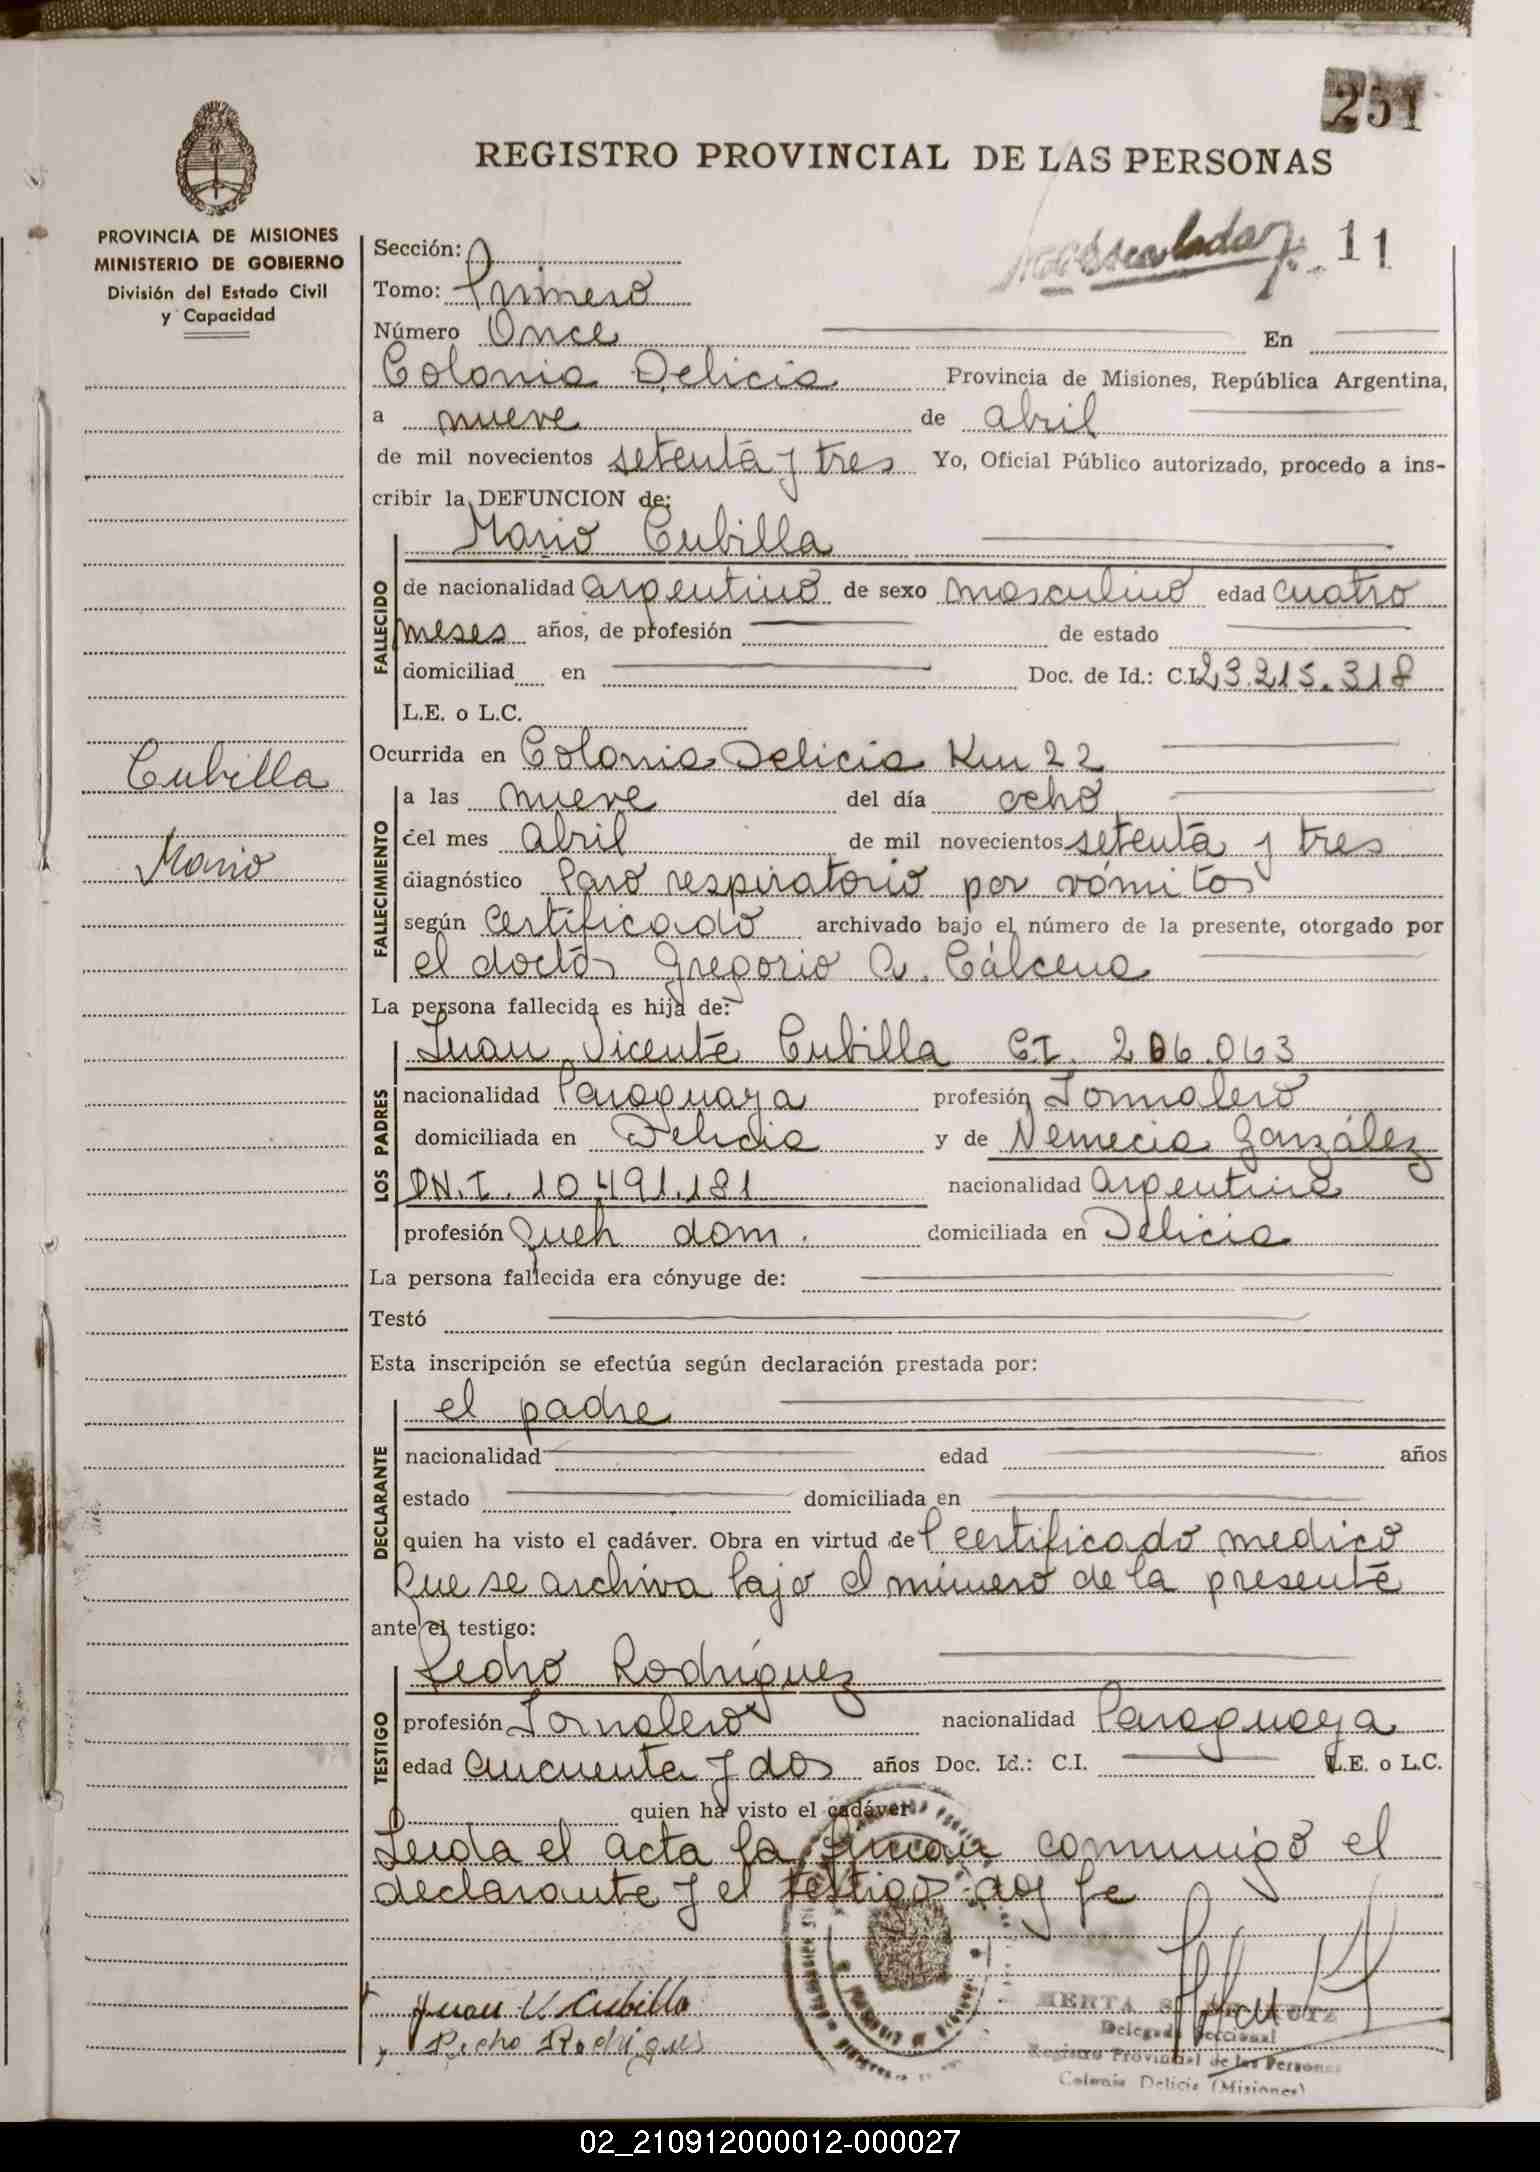 251
REGISTRO PROVINCIAL DE LAS PERSONAS
PROVINCIA DE MISIONES
MINISTERIO DE GOBIERNO
División del Estado Civil
y Capacidad
11
Sección:
Tomo: Primero
Número Once En
Colonia Delicia Provincia de Misiones, República Argentina,
a nueve de abril
de mil novecientos setenta y tres Yo, Oficial Público autorizado, procedo a ins-
cribir la DEFUNCION de:
Mario Cubilla
FALLECIDO
de nacionalidad argentino de sexo masculino edad cuatro
meses años, de profesión de estado
domiciliad en Doc. de Id.: C.I. 23.215.318
L.E. o L.C.
Ocurrida en Colonia Delicia Km 22
Cubilla
Mario
FALLECIMIENTO
a las nueve del día ocho
del mes abril de mil novecientos setenta y tres
diagnóstico Paro respiratorio por vómitos
según certificado archivado bajo el número de la presente, otorgado por
el doctor Gregorio A. Cálcena
La persona fallecida es hija de:
LOS PADRES
Juan Vicente Cubilla CI. 206.063
nacionalidad Paraguaya profesión Jornalero
domiciliada en Delicia y de Nemecia González
DN.I. 10.491.181 nacionalidad argentina
profesión queh dom. domiciliada en Delicia
La persona fallecida era cónyuge de:
Testó
Esta inscripción se efectúa según declaración prestada por:
DECLARANTE
el padre
nacionalidad edad años
estado domiciliada en
quien ha visto el cadáver. Obra en virtud de l certificado medico
que se archiva bajo el número de la presente
ante el testigo:
TESTIGO
Pedro Rodríguez
profesión Jornalero nacionalidad Paraguaya
edad cincuenta y dos años Doc. Id.: C.I. L.E. o L.C.
quien ha visto el cadáver
Leida el acta la firman conmigo el
declarante y el testigo doy fe
Juan V. Cubilla
Pedro Rodrigues
HERTA
Delegada Seccional
Registro Provincial de las Personas
Colonia Delicia (Misiones)
02_210912000012-000027